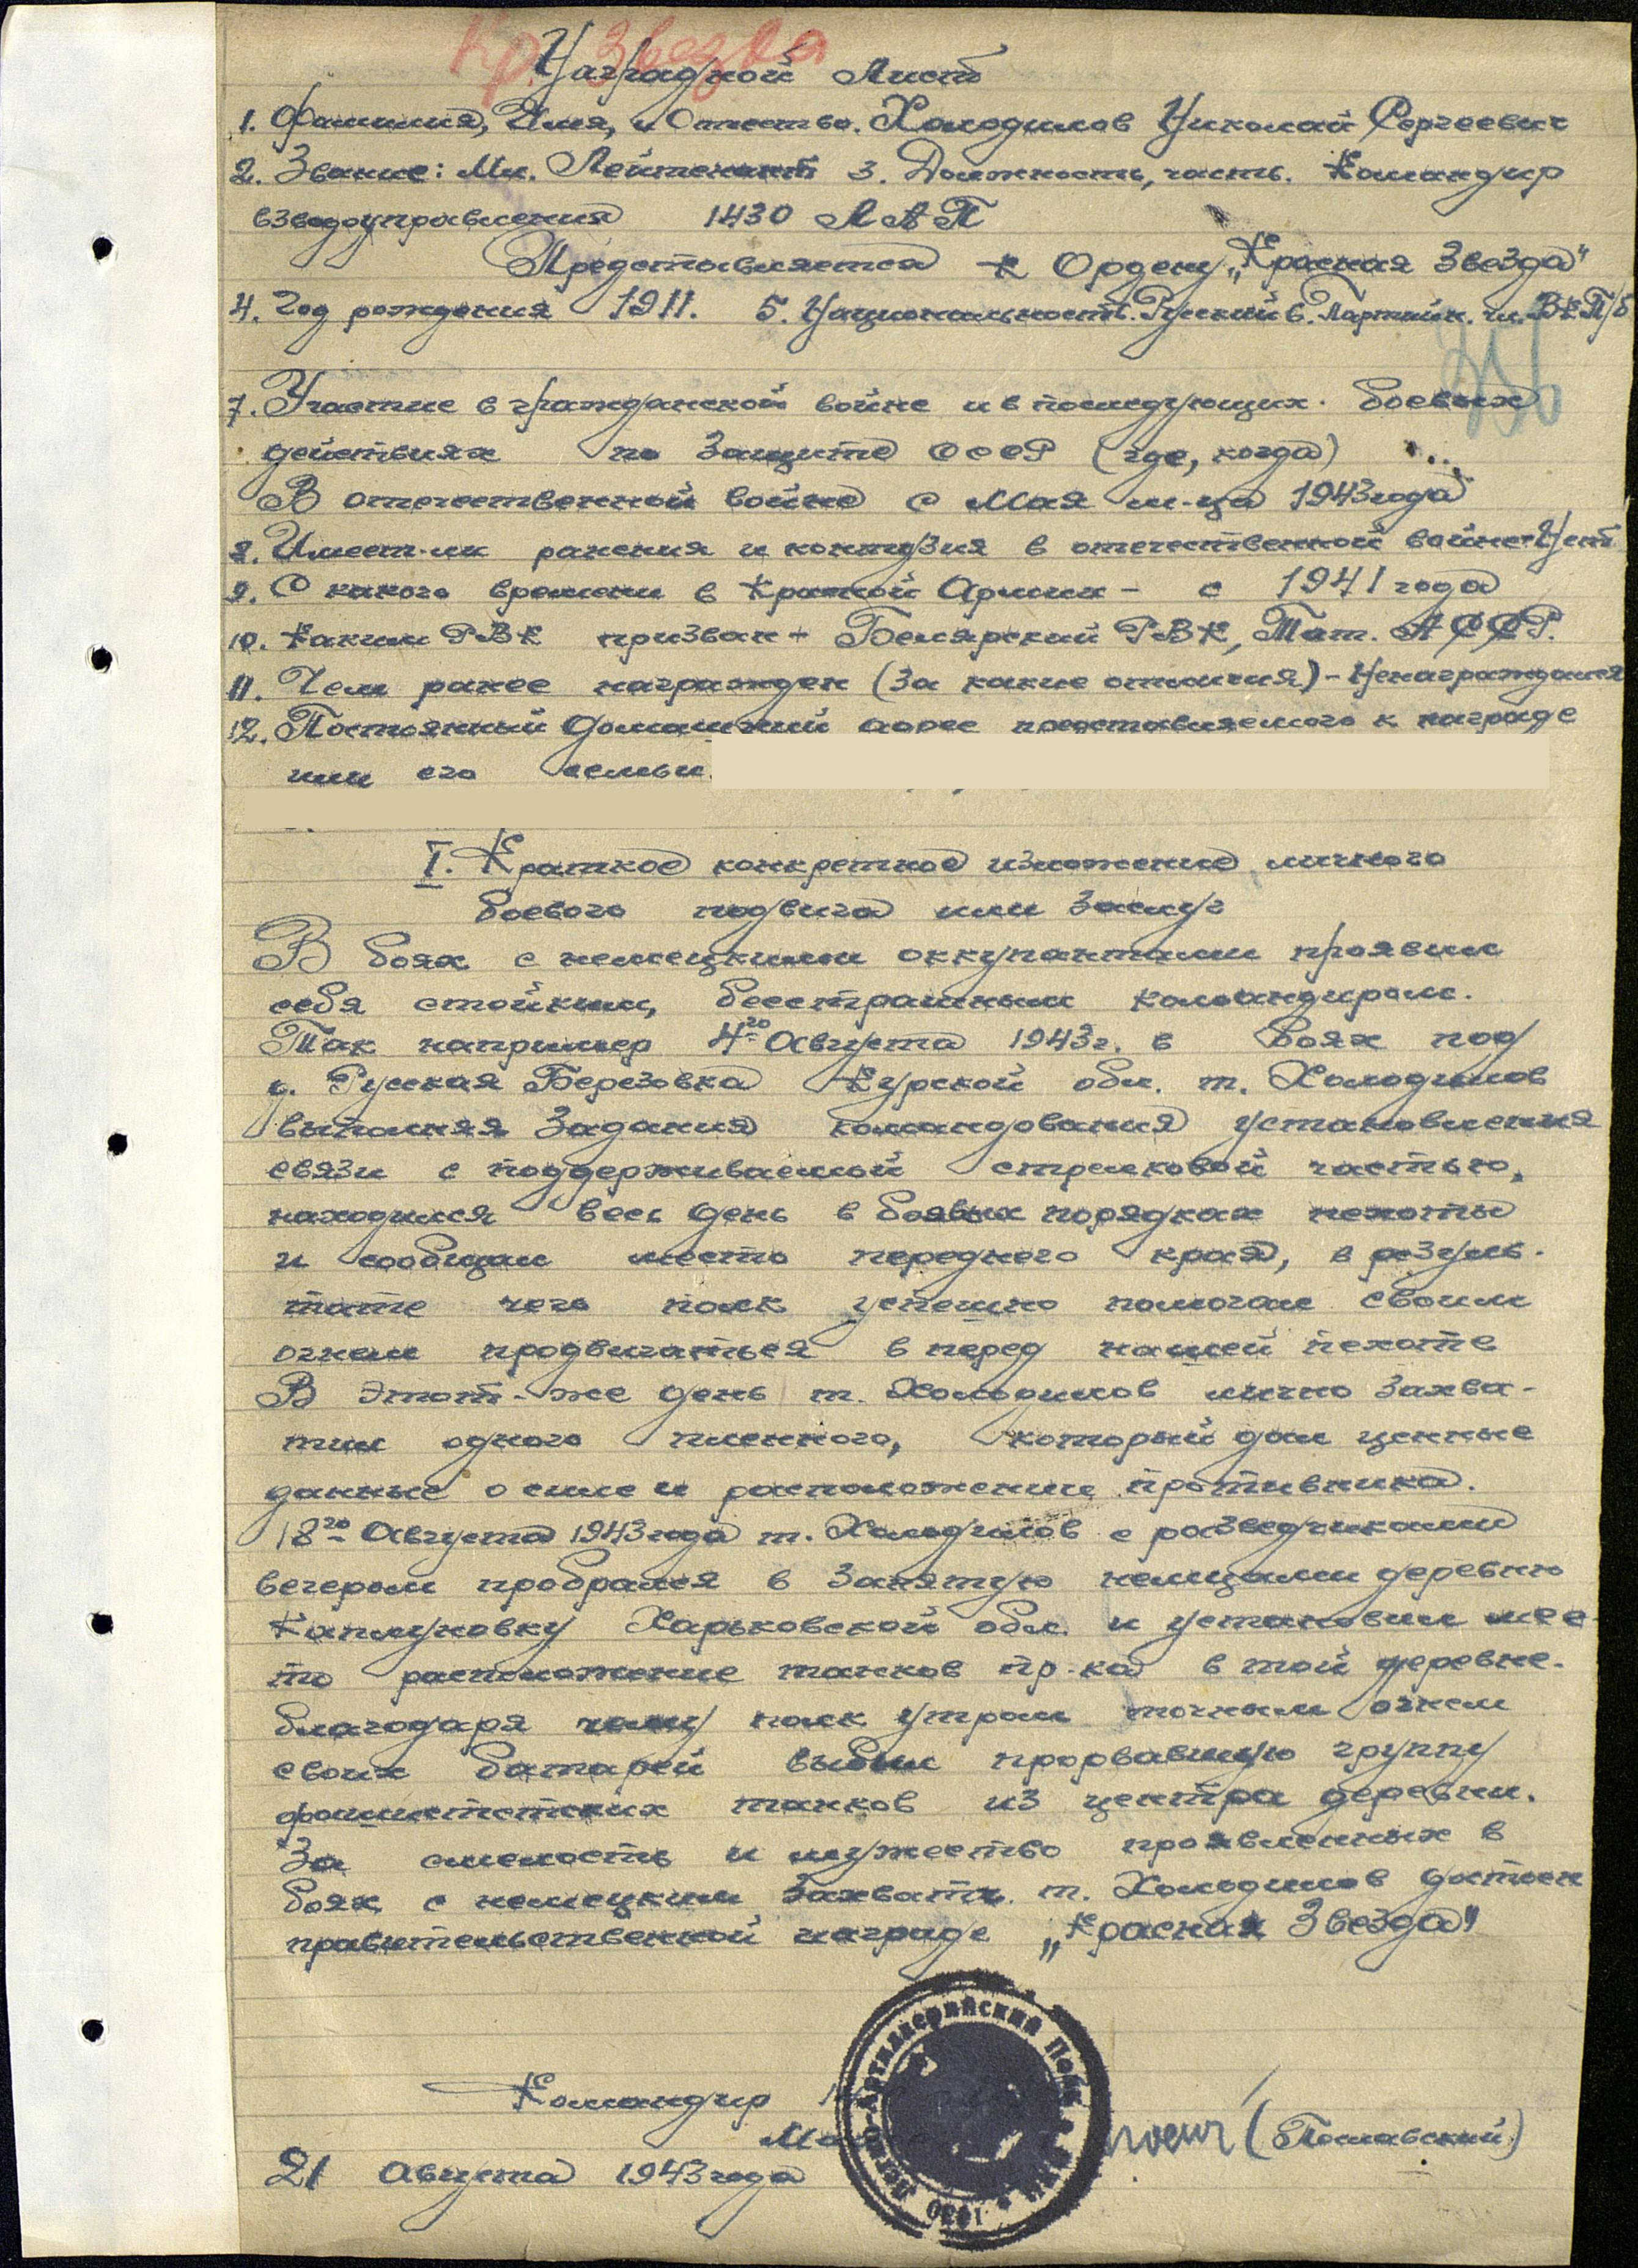 Кр. Звезда
Наградной Лист
1. Фамилия, Имя, и Отчество. Холодилов Николай Сергеевич
2. Звание: Мл. Лейтенант 3. Должность, часть. Командир
взводоуправления 1430 ЛАП
Представляется к Ордену „Красная Звезда"
4. Год рождения 1911. 5. Национальность. Русский 6. Партийн. чл. ВКП/б
7. Участие в гражданской войне и в последующих боевых
действиях по защите СССР (где, когда)
В отечественной войне с Мая м-ца 1943 года
8. Имеет-ли ранения и контузия в отечественной войне-Нет
9. С какого времени в Красной Армии - с 1941 года
10. Каким РВК призван - Билярский РВК, Тат. АССР.
11. Чем ранее награжден (за какие отличия) - Ненаграждался
12. Постоянный домашний адрес представляемого к награде
или его семьи.
I. Краткое конкретное изложение личного
боевого подвига или заслуг
В боях с немецкими оккупантами проявил
себя стойким, бесстрашным командиром.
Так например 4го Августа 1943г. в боях под
д. Русская Березовка Курской обл. т. Холодилов
выполняя задания командования установления
связи с поддерживаемой стрелковой частью,
находился весь день в боевых порядках пехоты
и сообщал место переднего края, в резуль-
тате чего полк успешно помогал своим
огнем продвигаться в перед нашей пехоте
В этот-же день т. Холодилов лично захва-
тил одного пленного, который дал ценные
данные о силе и расположении противника.
18го Августа 1943 года т. Холодилов с разведчиками
вечером пробрался в занятую немцами деревню
Каплуновку Харьковской обл. и установил мес-
то расположение танков пр-ка в той деревне.
благодаря чему полк утром точным огнем
своих батарей выбил прорвавшую группу
фашистстских танков из центра деревни.
За смелость и мужество проявленных в
боях с немецким захватч. т. Холодилов достоен
правительственной награде „Красная Звезда"
Командир
(Полавский)
21 Августа 1943 года
Легко-Артиллерийский Полк
1430